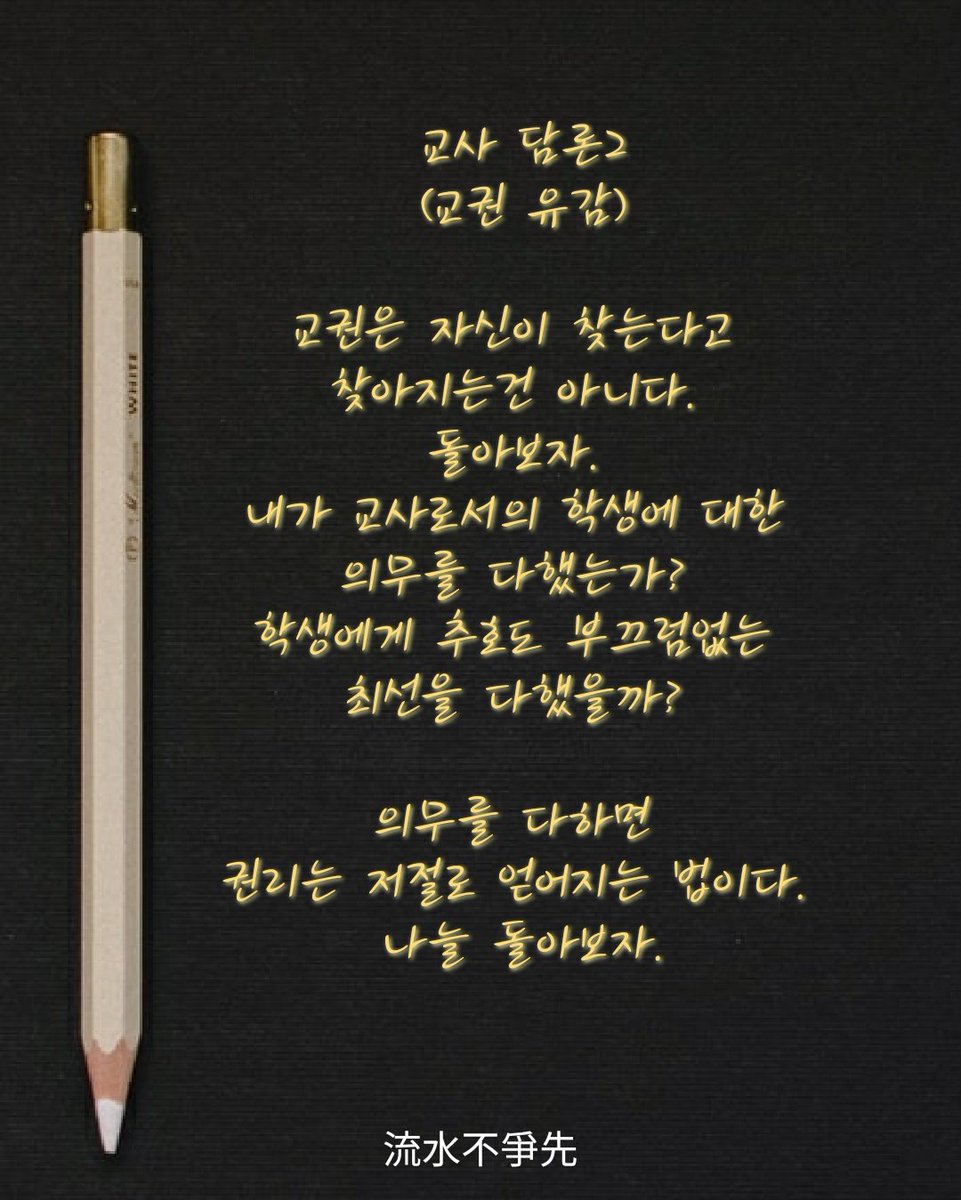 교사 담론2
(교권 유감)
교권은 자신이 찾는다고
찾아지는건 아니다.
돌아보자.
내가 교사로서의 학생에 대한
의무를 다했는가?
학생에게 추호도 부끄럼없는
최선을 다했을까?
의무를 다하면
권리는 저절로 얻어지는 법이다.
나늘 돌아보자.
WHITE
流水不爭先